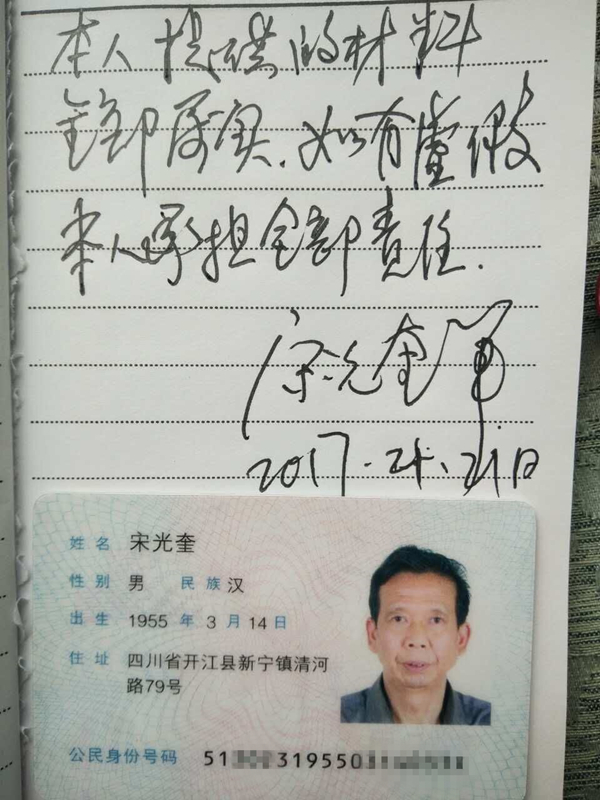 本人提供的材料
全部属实.如有虚假
本人承担全部责任.
宋光奎
姓名 宋光奎
性别 男 民族 汉
出生 1955 年 3 月 14 日
住址 四川省开江县新宁镇清河
路79号
公民身份号码